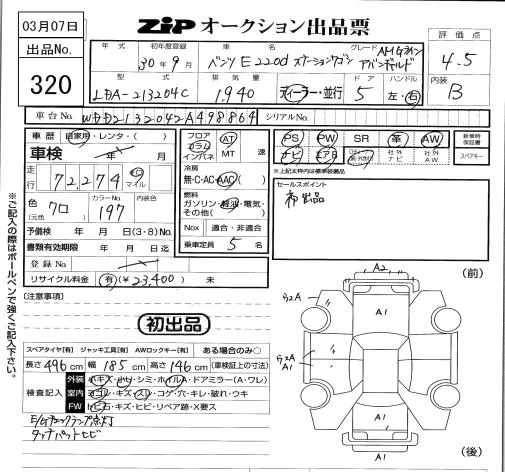 03月07日
ZIP オークション出品票
出品No.
320
年式 初年度登録 車名 グレード 評価点
30年9月 ベンツ E220d ステーションワゴン AMGライン アバンギャルド 4.5
型式 排気量 ドア ハンドル 内装
LDA-213204C 1,940 ディーラー・並行 5 左・右 B
車台No. WDD2132042A498864 シリアルNo.
車歴 自家用・レンタ・( )
車検 年 月
走行 72,274 km マイル
色(元色) クロ カラーNo. 197 内装色
予備検 年 月 日(3・8)No.
書類有効期限 年 月 日迄
登録No.
リサイクル料金 有(¥23,400) 未
フロア コラム インパネ AT MT 速
冷房 無・C・AC・AAC( )
燃料 ガソリン・軽油・電気・その他( )
Nox 適合・非適合
乗車定員 5 名
PS PW SR 革 AW 新車時保証書
ナビ エアB 社外ナビ 社外AW スペアキー
※上記太枠内は標準装備品
セールスポイント
初出品
※ご記入の際はボールペンで強くご記入下さい。
(注意事項)
初出品
スペアタイヤ[有] ジャッキ工具[有] AWロックキー[有] ある場合のみ○
長さ496cm 幅185cm 高さ146cm (車検証上の寸法)
検査記入 外装 小キズ・小リ・シミ・ホイルA・ドアミラー(A・ワレ)
室内 ヨゴレ・キズ・スレ・コゲ・穴・キレ・破れ・ウキ
FW トビ石・キズ・ヒビ・リペア跡・X要ス
E/Gチェックランプ点灯
タッチパットヒビ
(前)
A2
A1
うスA
A1
うスA
A1
A1
(後)